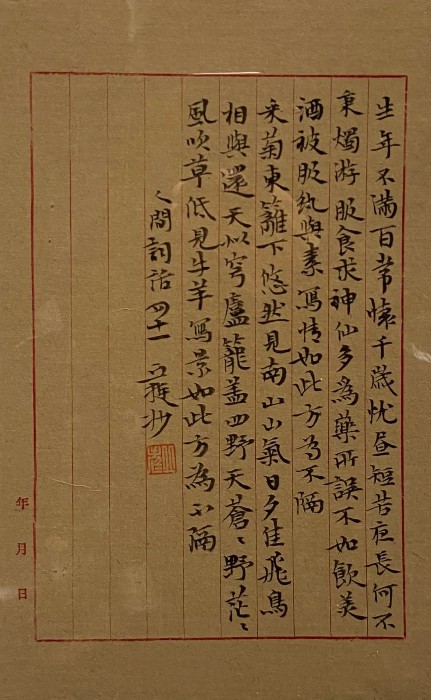 生年不滿百常懷千歲忧昼短苦夜長何不
秉燭游服食求神仙多為藥所誤不如飲美
酒被服紈與素寫情如此方为不隔
采菊東籬下悠然見南山山氣日夕佳飛鳥
相與還天似穹廬籠盖四野天蒼〻野茫〻
風吹草低見牛羊寫景如此方為不隔
人間詞話四十一 抄
年月日